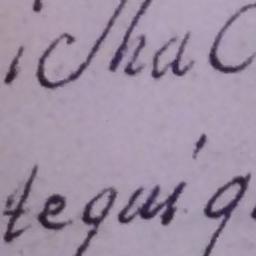 icha C
tequig